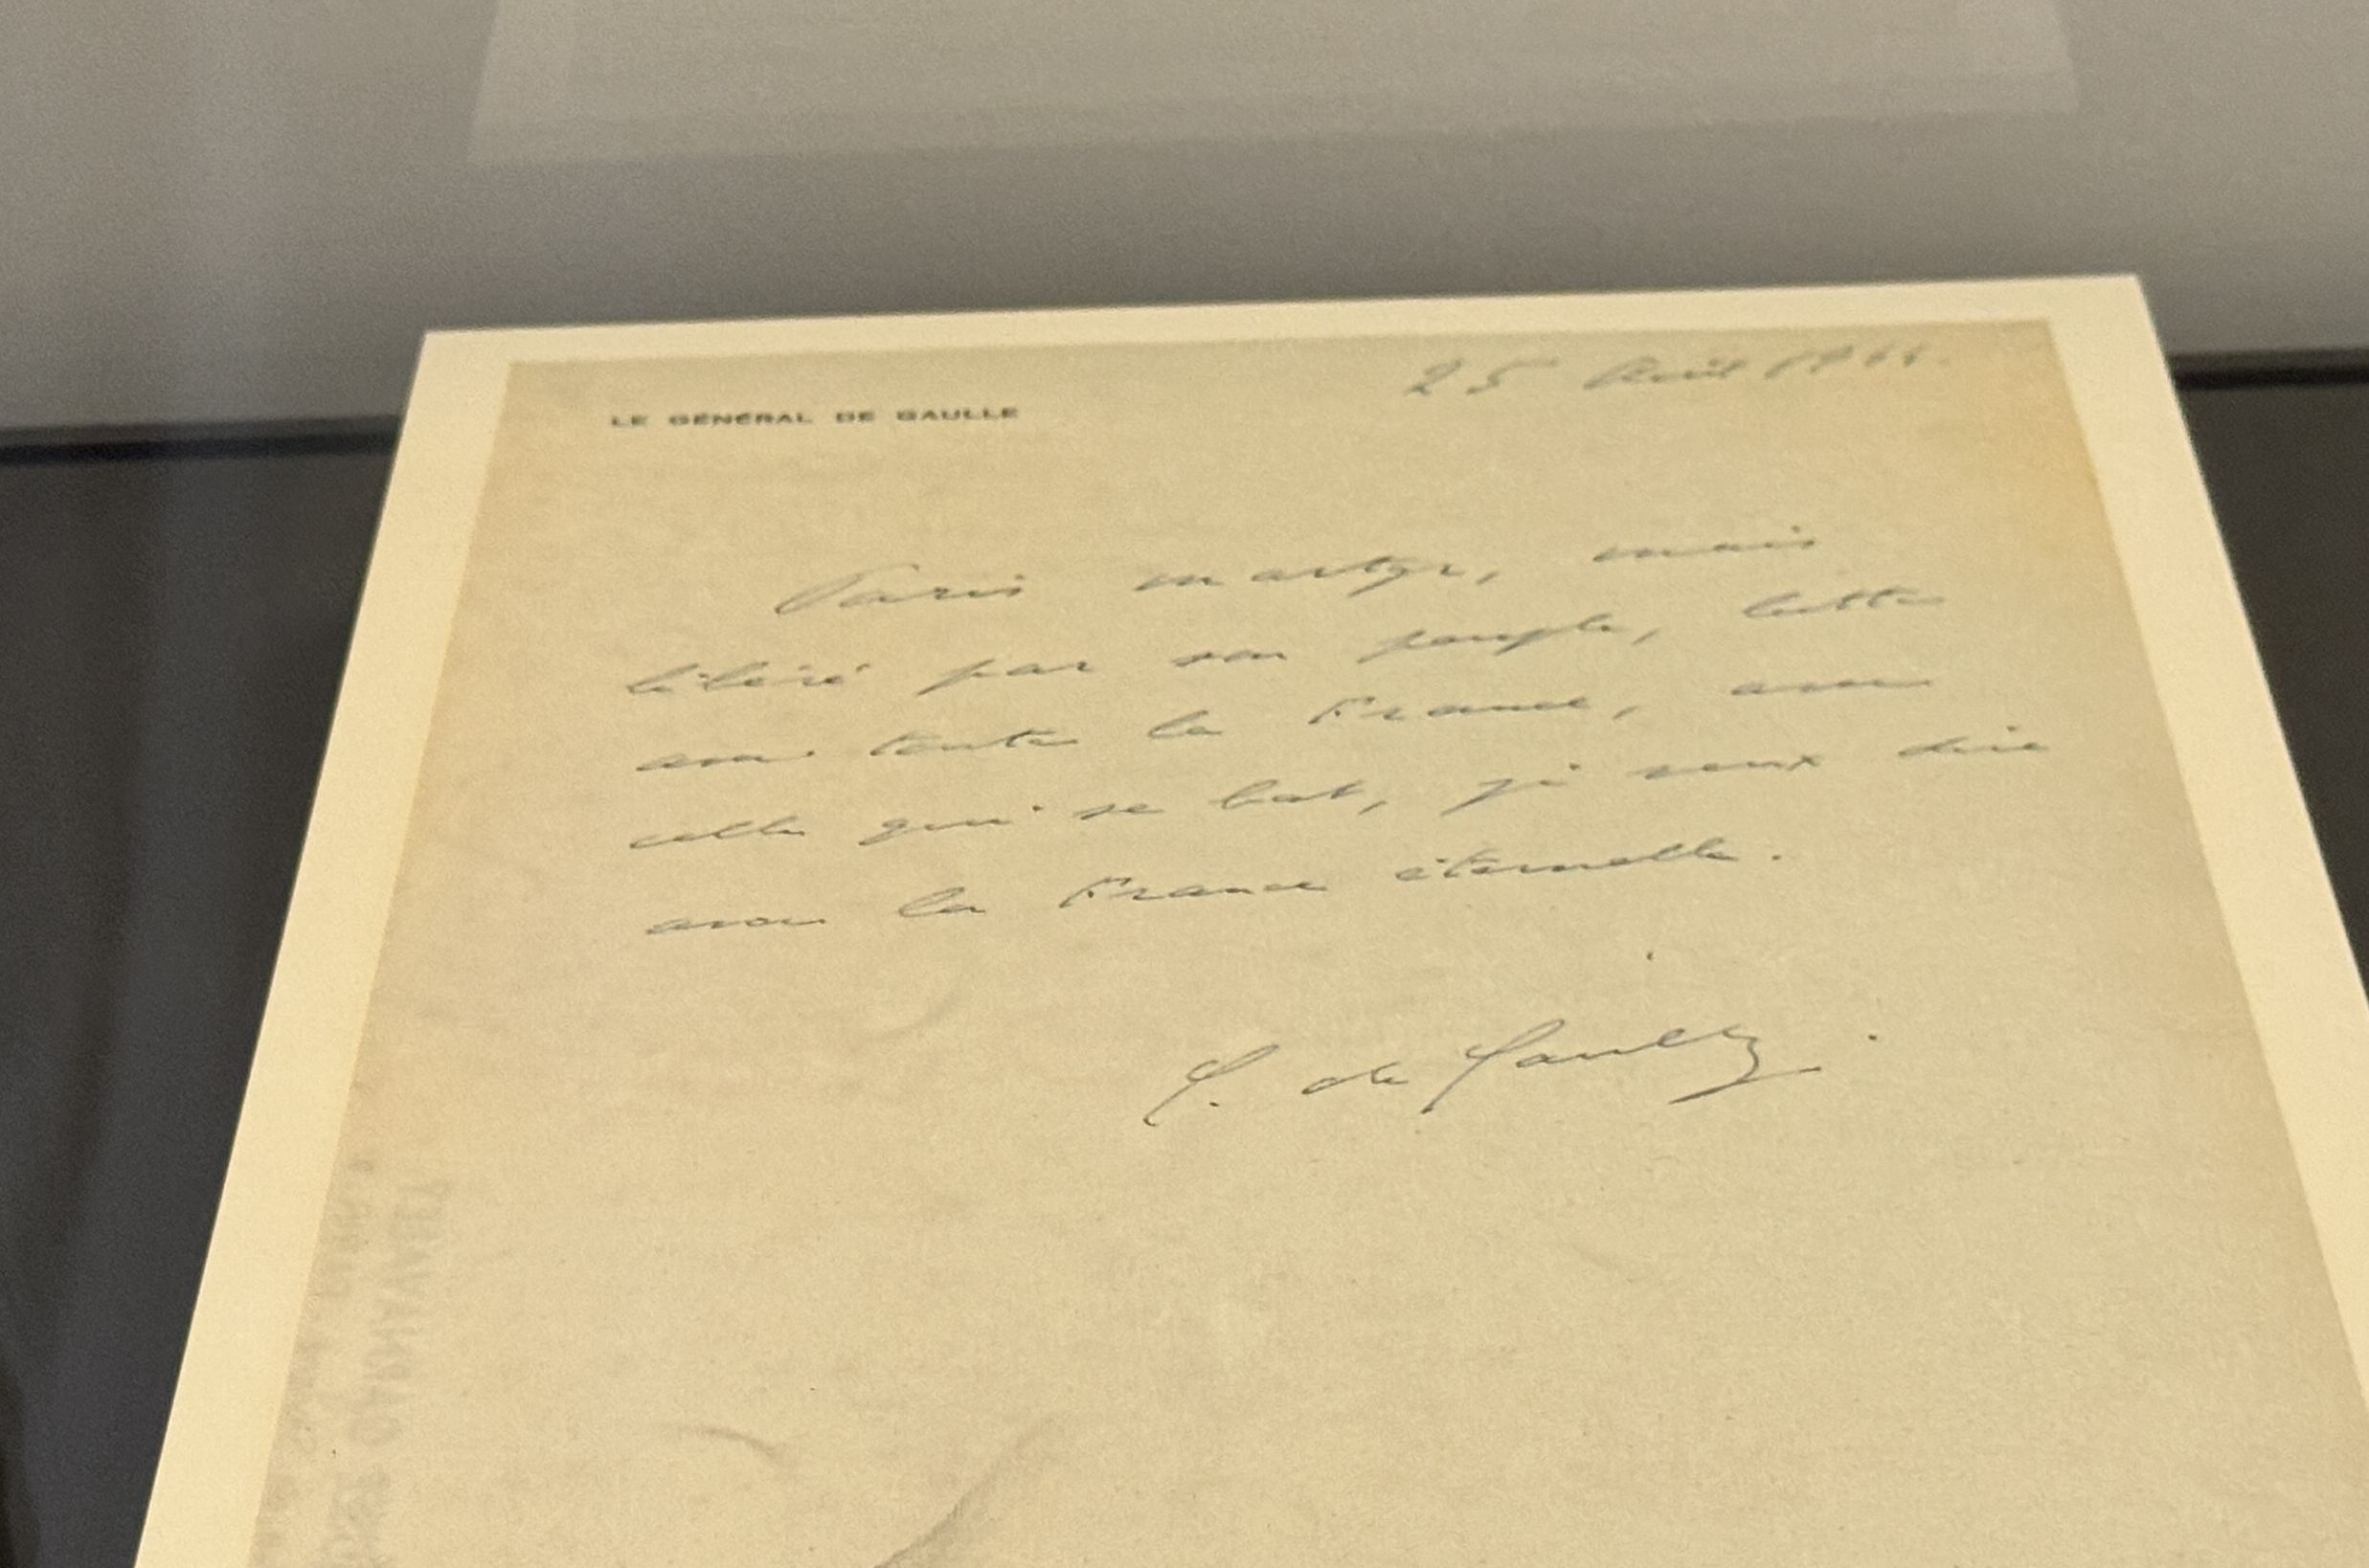 LE GÉNÉRAL DE GAULLE
25 Août 1944.
Paris martyr, mais
libéré par son peuple, lutte
avec toute la France, avec
celle qui se bat, je veux dire
avec la France éternelle.
C. de Gaulle.
CARNAVALET